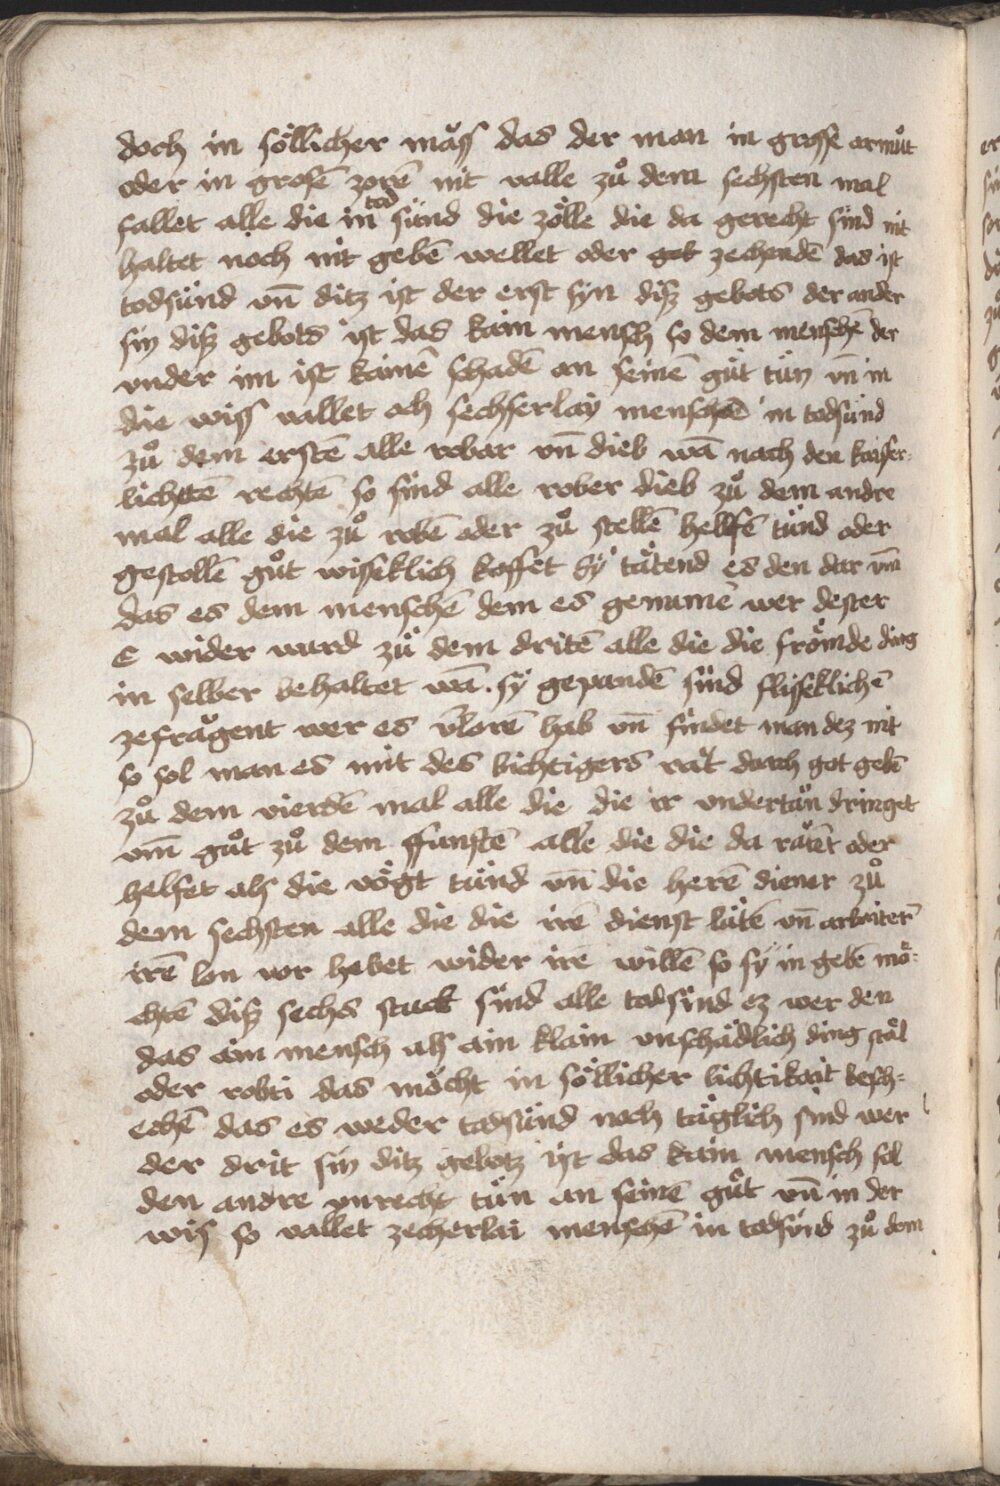 doch in söllicher mäss das der man in grosse armuͦt
oder in grosē zorē nit valle zuͦ dem sechsten mal
fallet alle die in tod sünd die zölle die da gerecht sind nit
haltet noch nit gebē wellet oder get zechendē das ist
todsünd vn̄ ditz ist der erst syn diß gebots der ander
sin diß gebots ist das kain mensch so dem menschē der
vnder im ist kainē schadē an seinē guͦt tün vn̄ in
die wiss vallet och sechserlay menschē in todsünd
zuͦ dem erstē alle robar vn̄ dieb wā nach den kaiser-
lichē rechtē so sind alle rober dieb zuͦ dem andre
mal alle die zuͦ robē oder zuͦ stellē helfē tünd oder
gestollē guͦt wisseklich koffet sy tätend es den dar vm̄
das es dem menschē dem es genumē wer dester
E wider wurd zuͦ dem dritē alle die die frömde ding
in selber behaltet wā sy gepandē sind flisseklichē
zefrägent wer es v̄lorē hab vn̄ findet man dez nit
so sol man es mit des bichtigers rät durch got gebē
zuͦ dem vierdē mal alle die die ir vndertän dringet
vm̄ guͦt zuͦ dem ffunftē alle die die da rätēt oder
helfet als die vögt tünd vn̄ die herē diener zuͦ
dem sechsten alle die die irē dienst lütē vn̄ arbaiterē
irē lon vor hebet wider irē willē so sy in gebē mö-
chtē diß sechs stuck sind alle todsünd ez wer den
das ain mensch als ain klain vnschädlich ding stäl
oder robti das möcht in söllicher lichtikait besch-
echē das es weder todsünd noch täglich sünd wer
der drit sin ditz gebotz ist das kain mensch sol
den andre vnrecht tün an seinē guͦt vn̄ in der
wis so vallet zecherlai menschē in todsünd zuͦ dem